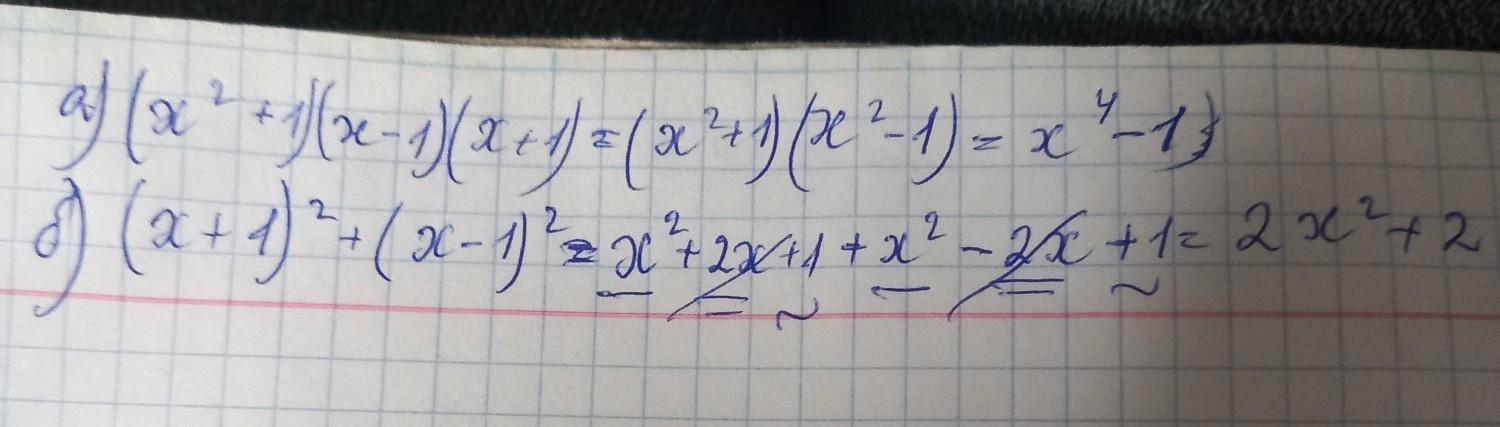 а) (x²+1)(x-1)(x+1)=(x²+1)(x²-1)=x⁴-1;
б) (x+1)²+(x-1)²=x²+2x+1+x²-2x+1=2x²+2